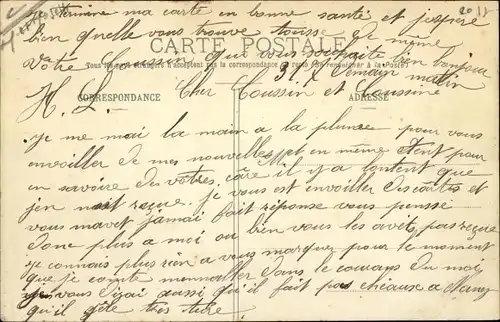 je termine ma carte en bonne santé et j'espère
bien quelle vous trouve tousse de même
Votre Coussin qui vous souhaite bien bonjour
CARTE POSTALE
Tous les pays étrangers n'acceptent pas la correspondance au recto (Se renseigner à la Poste)
H. L. Demain matin
CORRESPONDANCE
ADRESSE
Cher Coussin et Coussine
Je me mai la main a la plume pour vous
envoiller de mes nouvelles et en même tent pour
en savoire de votres. care il y a lontent que
j'en nait reçue. je vous est envoiller des cartes et
vous mavet jamai fait réponse vous pensé
donc plus a moi ou bien vous les avets pas reçue
je connais plus rien a vous marquez pour le moment
que je compte men aller dans le courans du moi
vous dirai aussi qu'il fait pas cheaux a
qu'il gèle très dure.